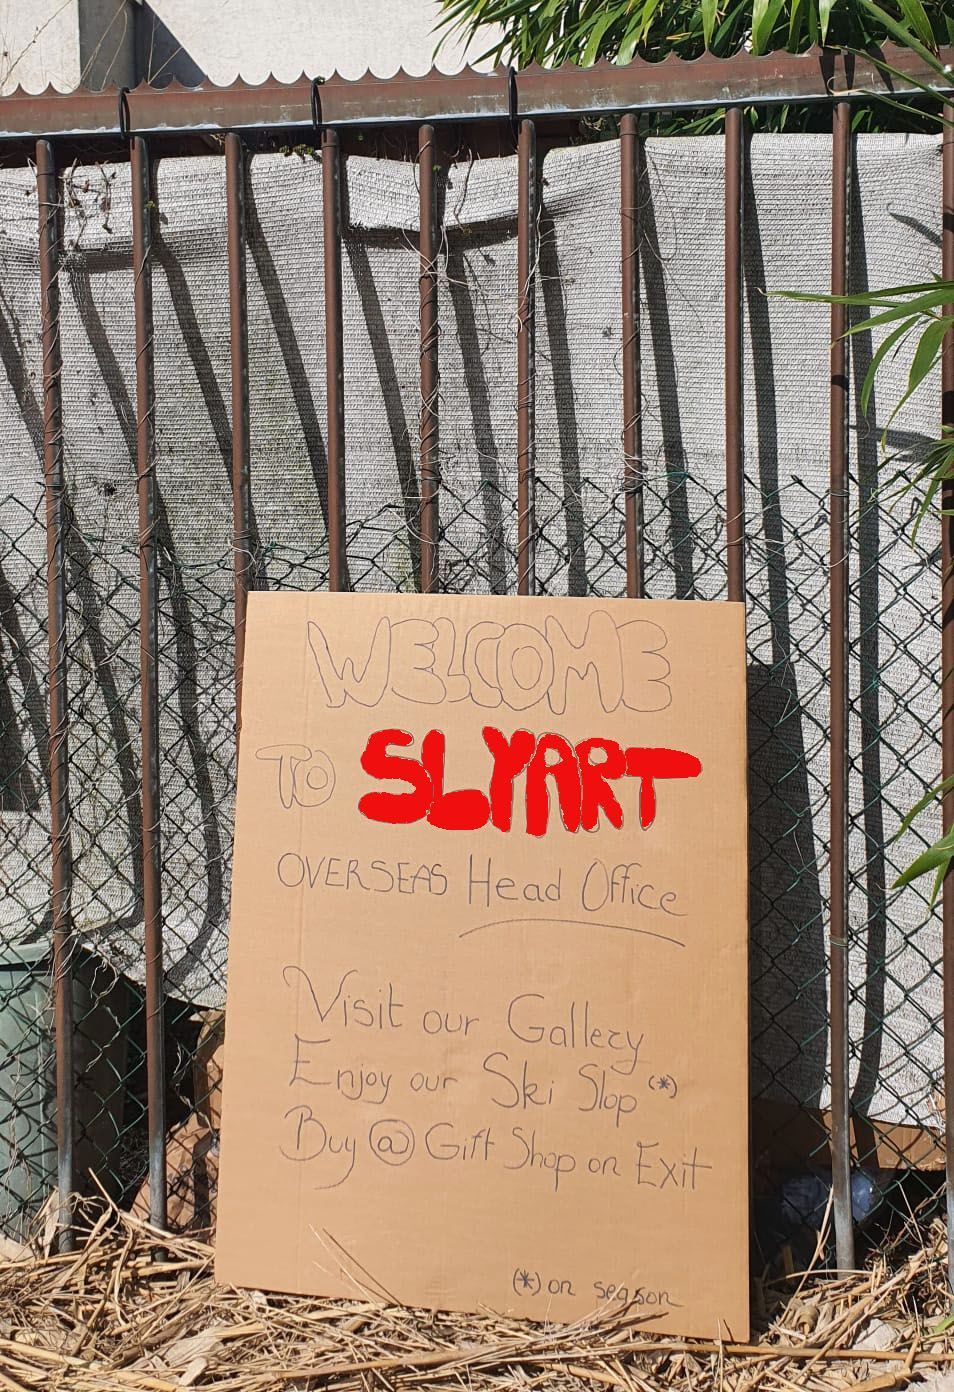 WELCOME
TO SLYART
OVERSEAS Head Office
Visit our Gallery
Enjoy our Ski Slop (*)
Buy @ Gift Shop on Exit
(*) on season